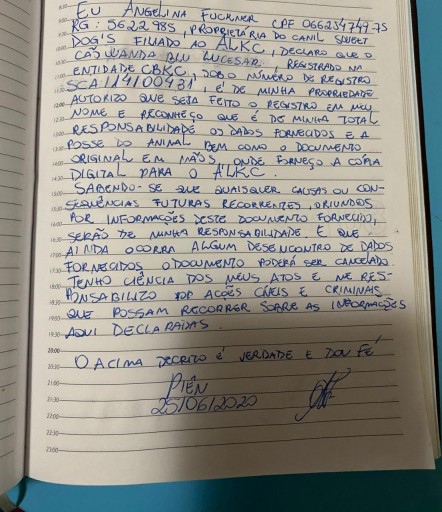 EU ANGELINA FUCKNER CPF 066234749-75
RG: 5622985, PROPRIETÁRIA DO CANIL SWEET
DOG'S FILIADO AO ALKC, DECLARO QUE O
CÃO WANDA BLU LUCESAR, REGISTRADO NA
ENTIDADE CBKC, SOB O NÚMERO DE REGISTRO
SCA 114100431, É DE MINHA PROPRIEDADE
AUTORIZO QUE SEJA FEITO O REGISTRO EM MEU
NOME E RECONHEÇO QUE É DE MINHA TOTAL
RESPONSABILIDADE OS DADOS FORNECIDOS E A
POSSE DO ANIMAL BEM COMO O DOCUMENTO
ORIGINAL EM MÃOS, ONDE FORNEÇO A CÓPIA
DIGITAL PARA O ALKC.
SABENDO-SE QUE QUAISQUER CAUSAS OU CON-
SEQUÊNCIAS FUTURAS RECORRENTES, ORIUNDOS
POR INFORMAÇÕES DESTE DOCUMENTO FORNECIDO,
SERÃO DE MINHA RESPONSABILIDADE. E QUE
AINDA OCORRA ALGUM DESENCONTRO DE DADOS
FORNECIDOS O DOCUMENTO PODERÁ SER CANCELADO
TENHO CIÊNCIA DOS MEUS ATOS E ME RES-
PONSABILIZO POR ACÇÕES CÍVEIS E CRIMINAIS
QUE POSSAM RECORRER SOBRE AS INFORMAÇÕES
AQUI DECLARADAS.
20:00
O ACIMA DECRITO É VERDADE E DOU FÉ
20:30
PIÊN
21:00
25/06/2020
21:30
22:00
22:30
23:00